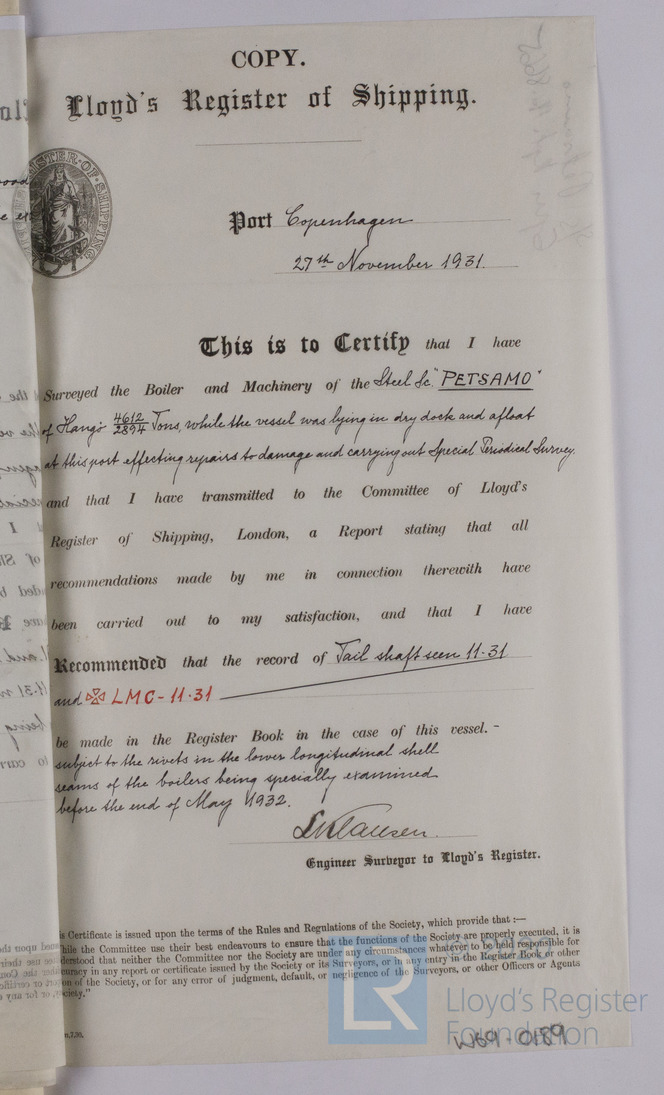 COPY.
Lloyd's Register of Shipping.
Port Copenhagen
27th November 1931.
This is to Certify that I have
Surveyed the Boiler and Machinery of the Steel Sc. "PETSAMO"
of Hangö 4612/2894 Tons, while the vessel was lying in dry dock and afloat
at this port effecting repairs to damage and carrying out Special Periodical Survey.
and that I have transmitted to the Committee of Lloyd's
Register of Shipping, London, a Report stating that all
recommendations made by me in connection therewith have
been carried out to my satisfaction, and that I have
Recommended that the record of Tail shaft seen 11·31
and LMC - 11·31
be made in the Register Book in the case of this vessel. -
subject to the rivets in the lower longitudinal shell
seams of the boilers being specially examined
before the end of May 1932.
Engineer Surveyor to Lloyd's Register.
is Certificate is issued upon the terms of the Rules and Regulations of the Society, which provide that :—
hile the Committee use their best endeavours to ensure that the functions of the Society are properly executed, it is
derstood that neither the Committee nor the Society are under any circumstances whatever to be held responsible for
curacy in any report or certificate issued by the Society or its Surveyors, or in any entry in the Register Book or other
on of the Society, or for any error of judgment, default, or negligence of the Surveyors, or other Officers or Agents
ciety."
LR
Lloyd's Register
Foundation
W69-0189